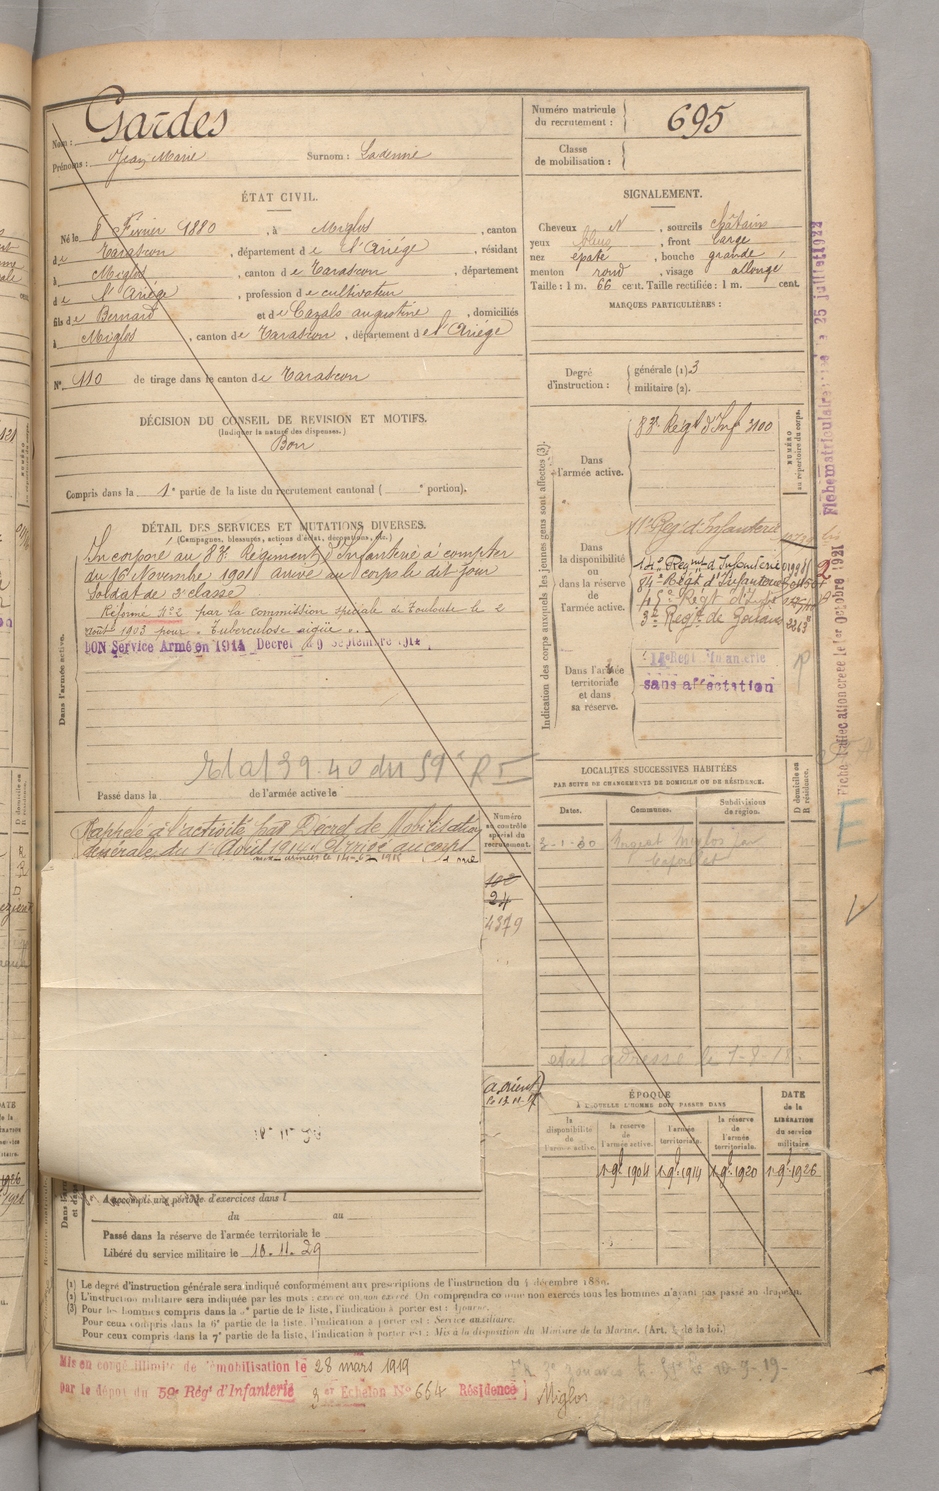 Nom : Gardes
Prénoms : Jean Marie Surnom : Ladenne
ÉTAT CIVIL.
Né le 8 Février 1880, à Miglos, canton
de Tarascon, département de l'Ariége, résidant
à Miglos, canton de Tarascon, département
de l'Ariége, profession de cultivateur
fils de Bernard et de Cazals augustine, domiciliés
à Miglos, canton de Tarascon, département de l'Ariége
N° 110 de tirage dans le canton de Tarascon
DÉCISION DU CONSEIL DE REVISION ET MOTIFS.
(Indiquer la nature des dispenses.)
Bon
Compris dans la 1e partie de la liste du recrutement cantonal ( e portion).
DÉTAIL DES SERVICES ET MUTATIONS DIVERSES.
(Campagnes, blessures, actions d'éclat, décorations, etc.)
Incorporé au 83e Régiment d'Infanterie à compter
du 16 Novembre 1901 arrivé au corps le dit jour
Soldat de 2e classe
Réformé N°2 par la commission spéciale de Toulouse le 2
Août 1903 pour "Tuberculose aigüe"
BON Service Armé en 1914 Decret du 9 Septembre 1914
Dans l'armée active.
Etat 39.40 du 59e RI
Passé dans la de l'armée active le
Rappelé à l'activité par Decret de Mobilisation
Générale du 1er Août 1914. Arrivé au corps
aux armées le
Numéro au contrôle spécial du recrutement.
102
24
4379
a. orient
18-11-29
A accompli une période d'exercices dans l
du au
Passé dans la réserve de l'armée territoriale le
Libéré du service militaire le 10.11.29
Numéro matricule du recrutement : 695
Classe de mobilisation :
SIGNALEMENT.
Cheveux N, sourcils châtains
yeux bleus, front large
nez épaté, bouche grande,
menton rond, visage allongé
Taille : 1 m. 66 cent. Taille rectifiée : 1 m. cent.
MARQUES PARTICULIÈRES :
Degré d'instruction : générale (1) 3
militaire (2).
Indication des corps auxquels les jeunes gens sont affectés (3).
NUMÉRO au répertoire du corps.
Dans l'armée active.
83e Régt d'Inf 3100
Dans la disponibilité ou dans la réserve de l'armée active.
Rég d'Infanterie
14e Régimt d'Infanterie
Régt d'Infanterie
Régt d'Inf
3e Régt de Zouaves
Dans l'armée territoriale et dans sa réserve.
14e Regt Infanterie
sans affectation
LOCALITES SUCCESSIVES HABITÉES
PAR SUITE DE CHANGEMENTS DE DOMICILE OU DE RÉSIDENCE.
Dates. Communes. Subdivisions de région. D domicile ou R résidence.
2-1-30 Miglos
etat adressé le
ÉPOQUE
A LAQUELLE L'HOMME DOIT PASSER DANS
la disponibilité de l'armée active. la réserve de l'armée active. l'armée territoriale. la réserve de l'armée territoriale.
DATE de la LIBÉRATION du service militaire
1 9bre 1904 1 9bre 1914 1 9bre 1920 1 9bre 1926
(1) Le degré d'instruction générale sera indiqué conformément aux prescriptions de l'instruction du 4 décembre 1889.
(2) L'instruction militaire sera indiquée par les mots : exercé ou non exercé. On comprendra comme non exercés tous les hommes n'ayant pas passé au drapeau.
(3) Pour les hommes compris dans la partie de la liste, l'indication à porter est : Ajourné.
Pour ceux compris dans la 6e partie de la liste, l'indication à porter est : Service auxiliaire.
Pour ceux compris dans la 7e partie de la liste, l'indication à porter est : Mis à la disposition du Ministre de la Marine. (Art. 4 de la loi.)
Mis en congé illimité de démobilisation le 28 mars 1919
par le dépot du 59e Régt d'Infanterie 3er Echelon N° 664 Résidence Miglos
Fiche matriculaire le 26 juillet 1922
Fiche d'affectation créée le 1er Octobre 1921